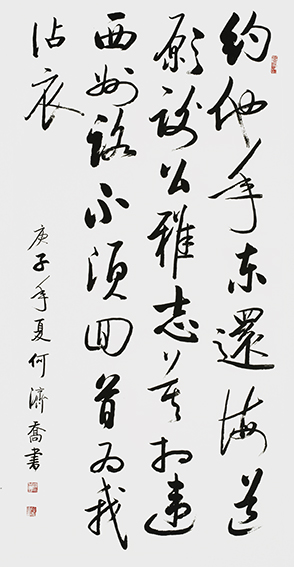 約他年東還海道
願謝公雅志莫相違
西州路不須回首為我
沾衣
庚子年夏何濟喬書